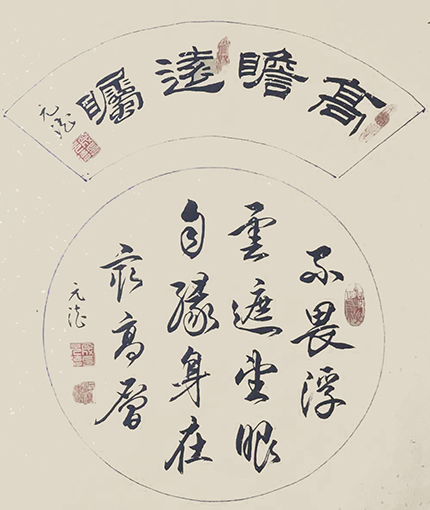 高瞻遠矚
元
不畏浮
雲遮望眼
自緣身在
最高層
元